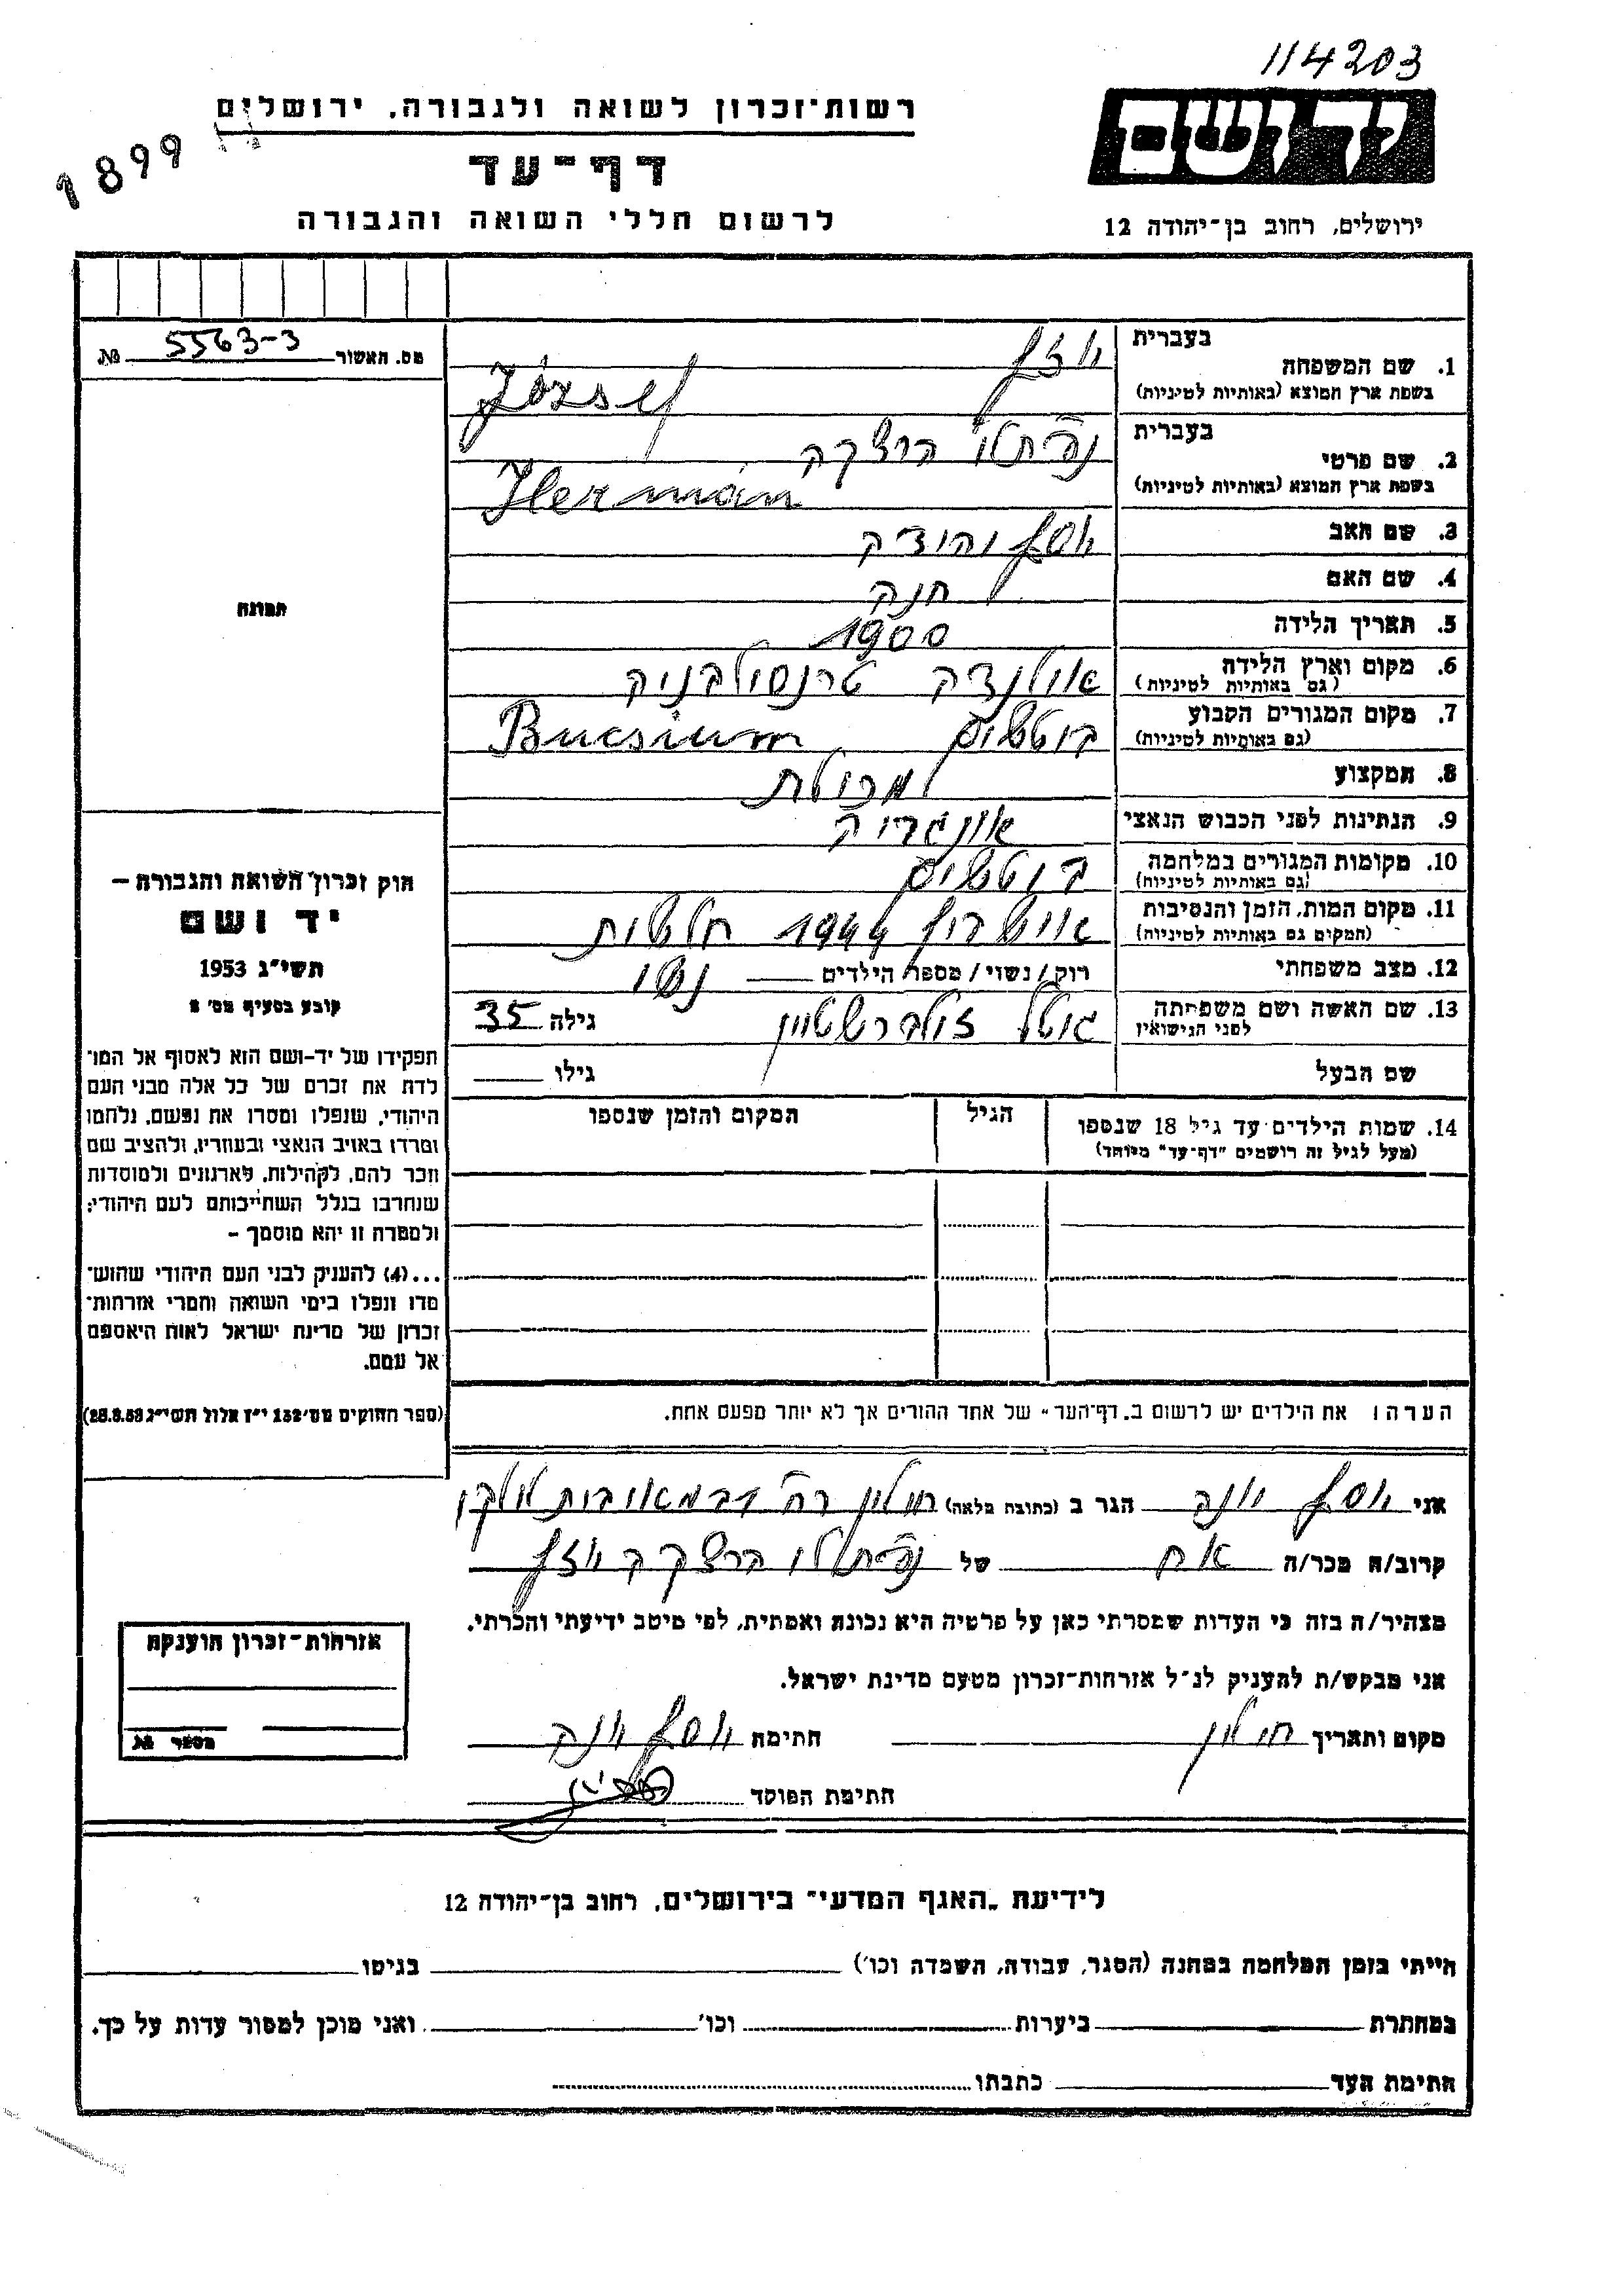 114203
יד ושם
ירושלים, רחוב בן-יהודה 12
רשות-זכרון לשואה ולגבורה, ירושלים
1899
דף-עד
לרשום חללי השואה והגבורה
מס. האשור 5563-3 №
1. שם המשפחה בעברית יוזף
בשפת ארץ המוצא (באותיות לטיניות) József
2. שם פרטי בעברית נפתלי הרצקה
בשפת ארץ המוצא (באותיות לטיניות) Hermán
3. שם האב יוסף
4. שם האם חנה
5. תאריך הלידה 1900
6. מקום וארץ הלידה טרנסילבניה
(גם באותיות לטיניות)
7. מקום המגורים הקבוע
(גם באותיות לטיניות) Bucsium
8. המקצוע מכולת
9. הנתינות לפני הכבוש הנאצי אונגריה
10. מקומות המגורים במלחמה
(גם באותיות לטיניות)
11. מקום המות, הזמן והנסיבות 1944
(המקום גם באותיות לטיניות)
12. מצב משפחתי רוק/נשוי/מספר הילדים נשוי
13. שם האשה ושם משפחתה זילברשטיין גילה 35
לפני הנישואין
שם הבעל גילו
14. שמות הילדים עד גיל 18 שנספו הגיל המקום והזמן שנספו
(מעל לגיל זה רושמים "דף-עד" מיוחד)
הערה: את הילדים יש לרשום ב"דף-העד" של אחד ההורים אך לא יותר מפעם אחת.
תמונה
חוק זכרון השואה והגבורה –
יד ושם
תשי"ג 1953
קובע בסעיף מס' 2
תפקידו של יד-ושם הוא לאסוף אל המו־
לדת את זכרם של כל אלה מבני העם
היהודי, שנפלו ומסרו את נפשם, נלחמו
ומרדו באויב הנאצי ובעוזריו, ולהציב שם
וזכר להם, לקהילות, לארגונים ולמוסדות
שנחרבו בגלל השתייכותם לעם היהודי;
ולמטרה זו יהא מוסמך –
...(4) להעניק לבני העם היהודי שהוש־
מדו ונפלו בימי השואה והמרי אזרחות־
זכרון של מדינת ישראל לאות היאספם
אל עמם.
(ספר החוקים מס' 132 י"ז אלול תשי"ג 28.8.53)
אני יוסף יונה הגר ב (כתובת מלאה) חולון רח'
קרוב/ה מכר/ה אח של נפתלי הרצקה יוזף
מצהיר/ה בזה כי העדות שמסרתי כאן על פרטיה היא נכונה ואמתית, לפי מיטב ידיעתי והכרתי.
אני מבקש/ת להעניק לנ"ל אזרחות-זכרון מטעם מדינת ישראל.
מקום ותאריך חולון חתימה יוסף יונה
חתימת הפוקד
אזרחות-זכרון הוענקה
מספר №
לידיעת "האגף המדעי" בירושלים, רחוב בן-יהודה 12
הייתי בזמן המלחמה במחנה (הסגר, עבודה, השמדה וכו') בגיטו
במחתרת ביערות וכו' ואני מוכן למסור עדות על כך.
חתימת העד כתבתו